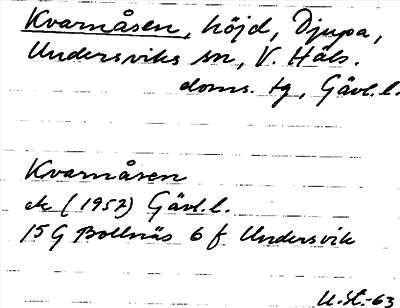 Kvarnåsen, höjd, Djupa,
Undersviks sn, V. Häls.
doms. tg, Gävl.l.
Kvarnåsen
ek (1957) Gävl.l.
15G Bollnäs 6f Undersvik
U.St.-63